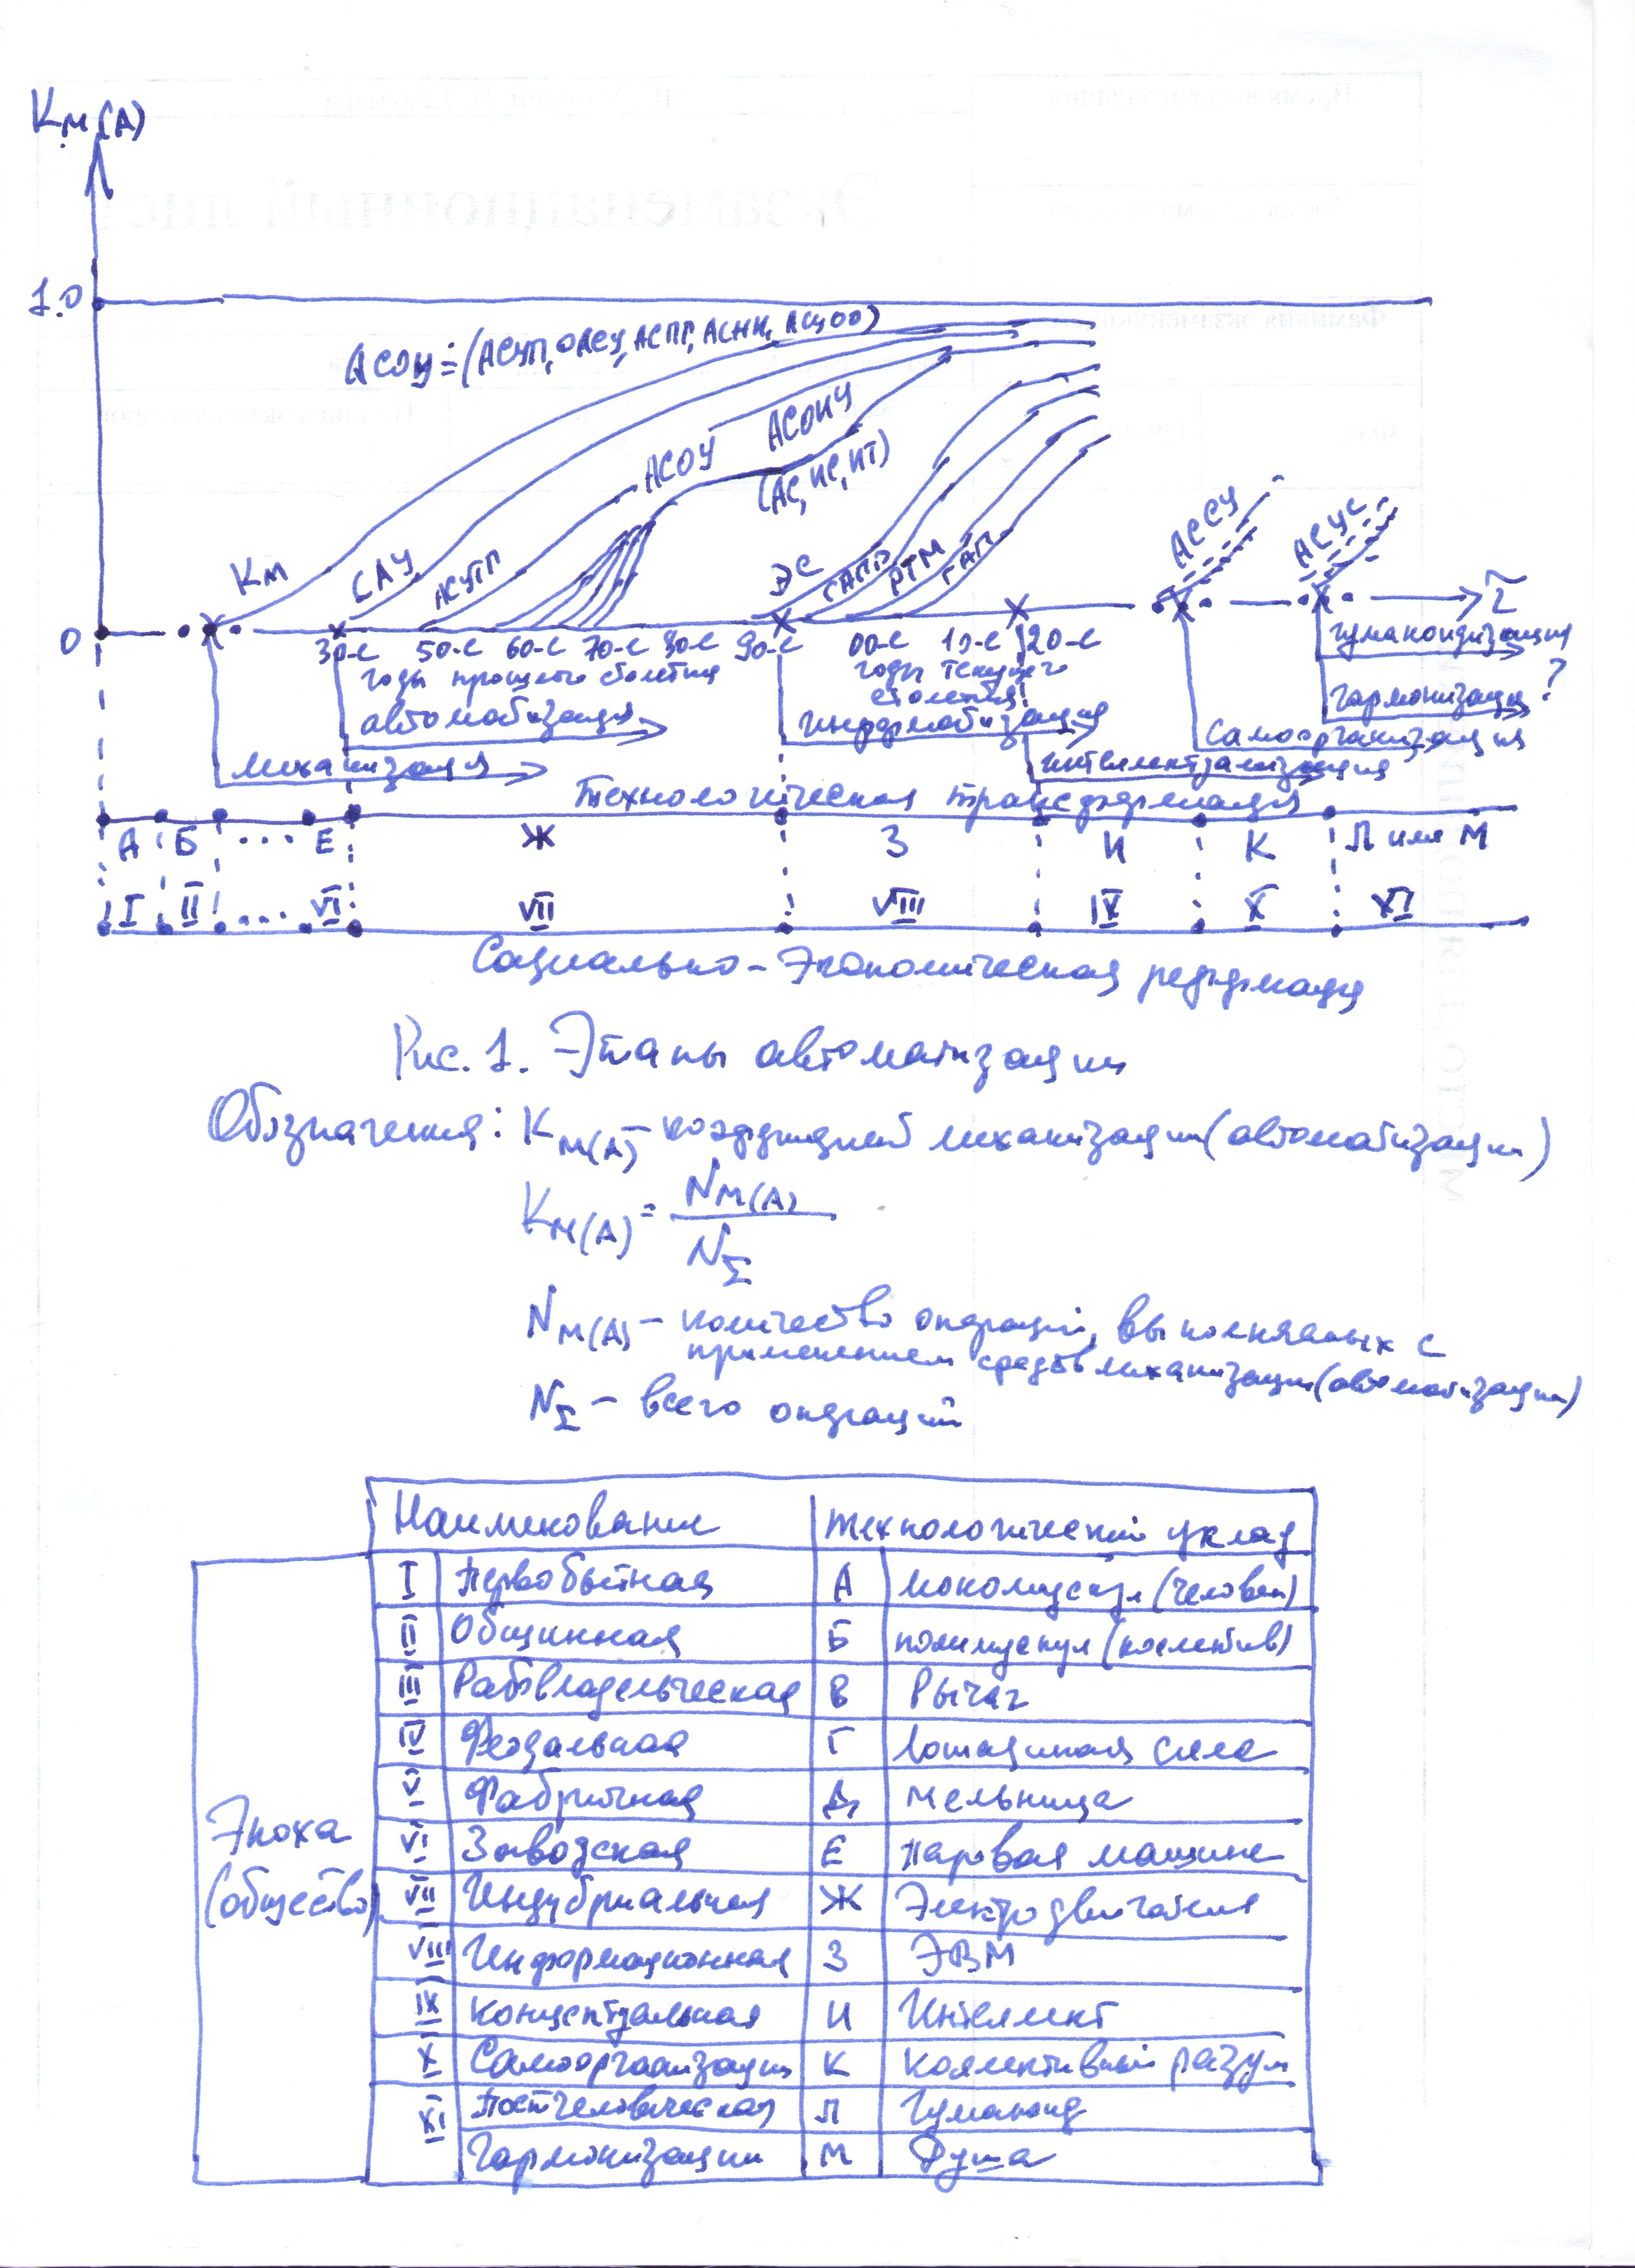 Kм(А)
1.0
АСОУ = (АСУП, ОАСУ, АСПГ, АСНИ, АСЦОО)
АСОУ
АСОИУ
(АС, ИС, ИТ)
Kм
САУ
АСУТП
ЭС
САПР
РТМ
ГАП
АССУ
АСУС
0
30-е 50-е 60-е 70-е 80-е 90-е 00-е 10-е 20-е
годы прошлого столетия
годы текущего
столетия
автоматизация
механизация
информатизация
интеллектуализация
самоорганизация
гуманоидизация
гармонизация ?
Технологическая трансформация
А Б ... Е Ж З И К Л или М
I II ... VI VII VIII IX X XI
Социально-Экономическая реформация
Рис. 1. Этапы автоматизации
Обозначения: Kм(А) - коэффициент механизации (автоматизации)
Kм(А) = Nм(А) / NΣ
Nм(А) - количество операций, выполняемых с
применением средств механизации (автоматизации)
NΣ - всего операций
Наименование Технологический уклад
Эпоха
(общество)
I Первобытная А мономускул (человек)
II Общинная Б полимускул (коллектив)
III Рабовладельческая В Рычаг
IV Феодальная Г Лошадиная сила
V Фабричная Д Мельница
VI Заводская Е Паровая машина
VII Индустриальная Ж Электродвигатель
VIII Информационная З ЭВМ
IX Концептуальная И Интеллект
X Самоорганизации К Коллективный разум
XI Постчеловеческая Л Гуманоид
Гармонизации М Душа